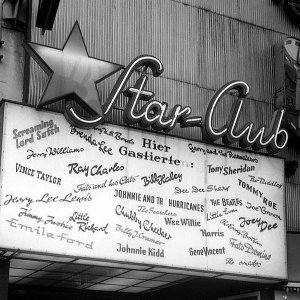 Star-Club
Hier
Gastierten:
Screaming
Lord Sutch
Jerry Williams
Vince Taylor
Ray Charles
Fats and his Cats
Jerry Lee Lewis
Jimmy
Little Richard
Emile Ford
Brenda Lee
Bill Haley
Johnny and the Hurricanes
The Searchers
Chubby Checker
Wee Willie Harris
Johnnie Kidd
Gene Vincent
Dee Dee Sharp
Gerry and the Pacemakers
Tony Sheridan
Tommy Roe
The Beatles
Little Eva
Joey Dee
Fats Domino